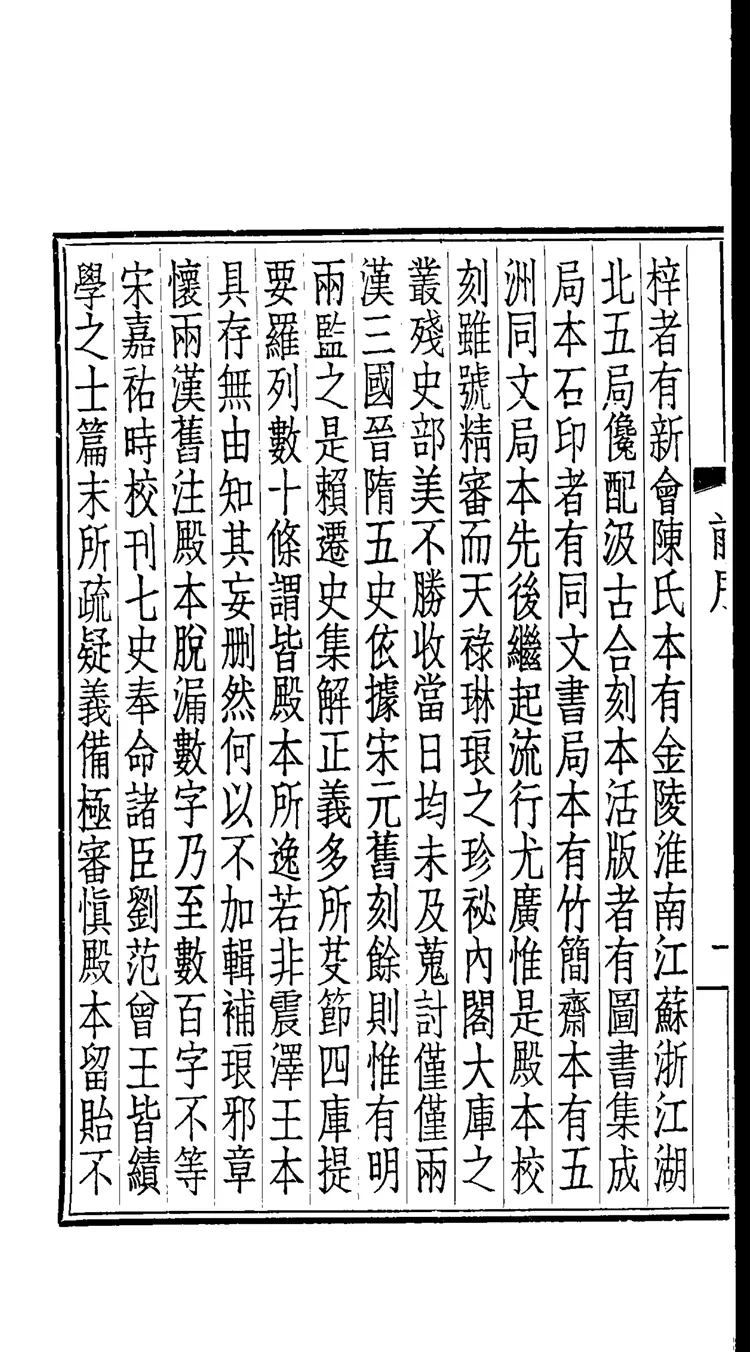 前序
一
梓者有新會陳氏本有金陵淮南江蘇浙江湖
北五局儳配汲古合刻本活版者有圖書集成
局本石印者有同文書局本有竹簡齋本有五
洲同文局本先後繼起流行尤廣惟是殿本校
刻雖號精審而天祿琳琅之珍祕內閣大庫之
叢殘史部美不勝收當日均未及蒐討僅僅兩
漢三國晉隋五史依據宋元舊刻餘則惟有明
兩監之是賴遷史集解正義多所芟節四庫提
要羅列數十條謂皆殿本所逸若非震澤王本
具存無由知其妄刪然何以不加輯補琅邪章
懷兩漢舊注殿本脫漏數字乃至數百字不等
宋嘉祐時校刊七史奉命諸臣劉范曾王皆績
學之士篇末所疏疑義備極審愼殿本留貽不